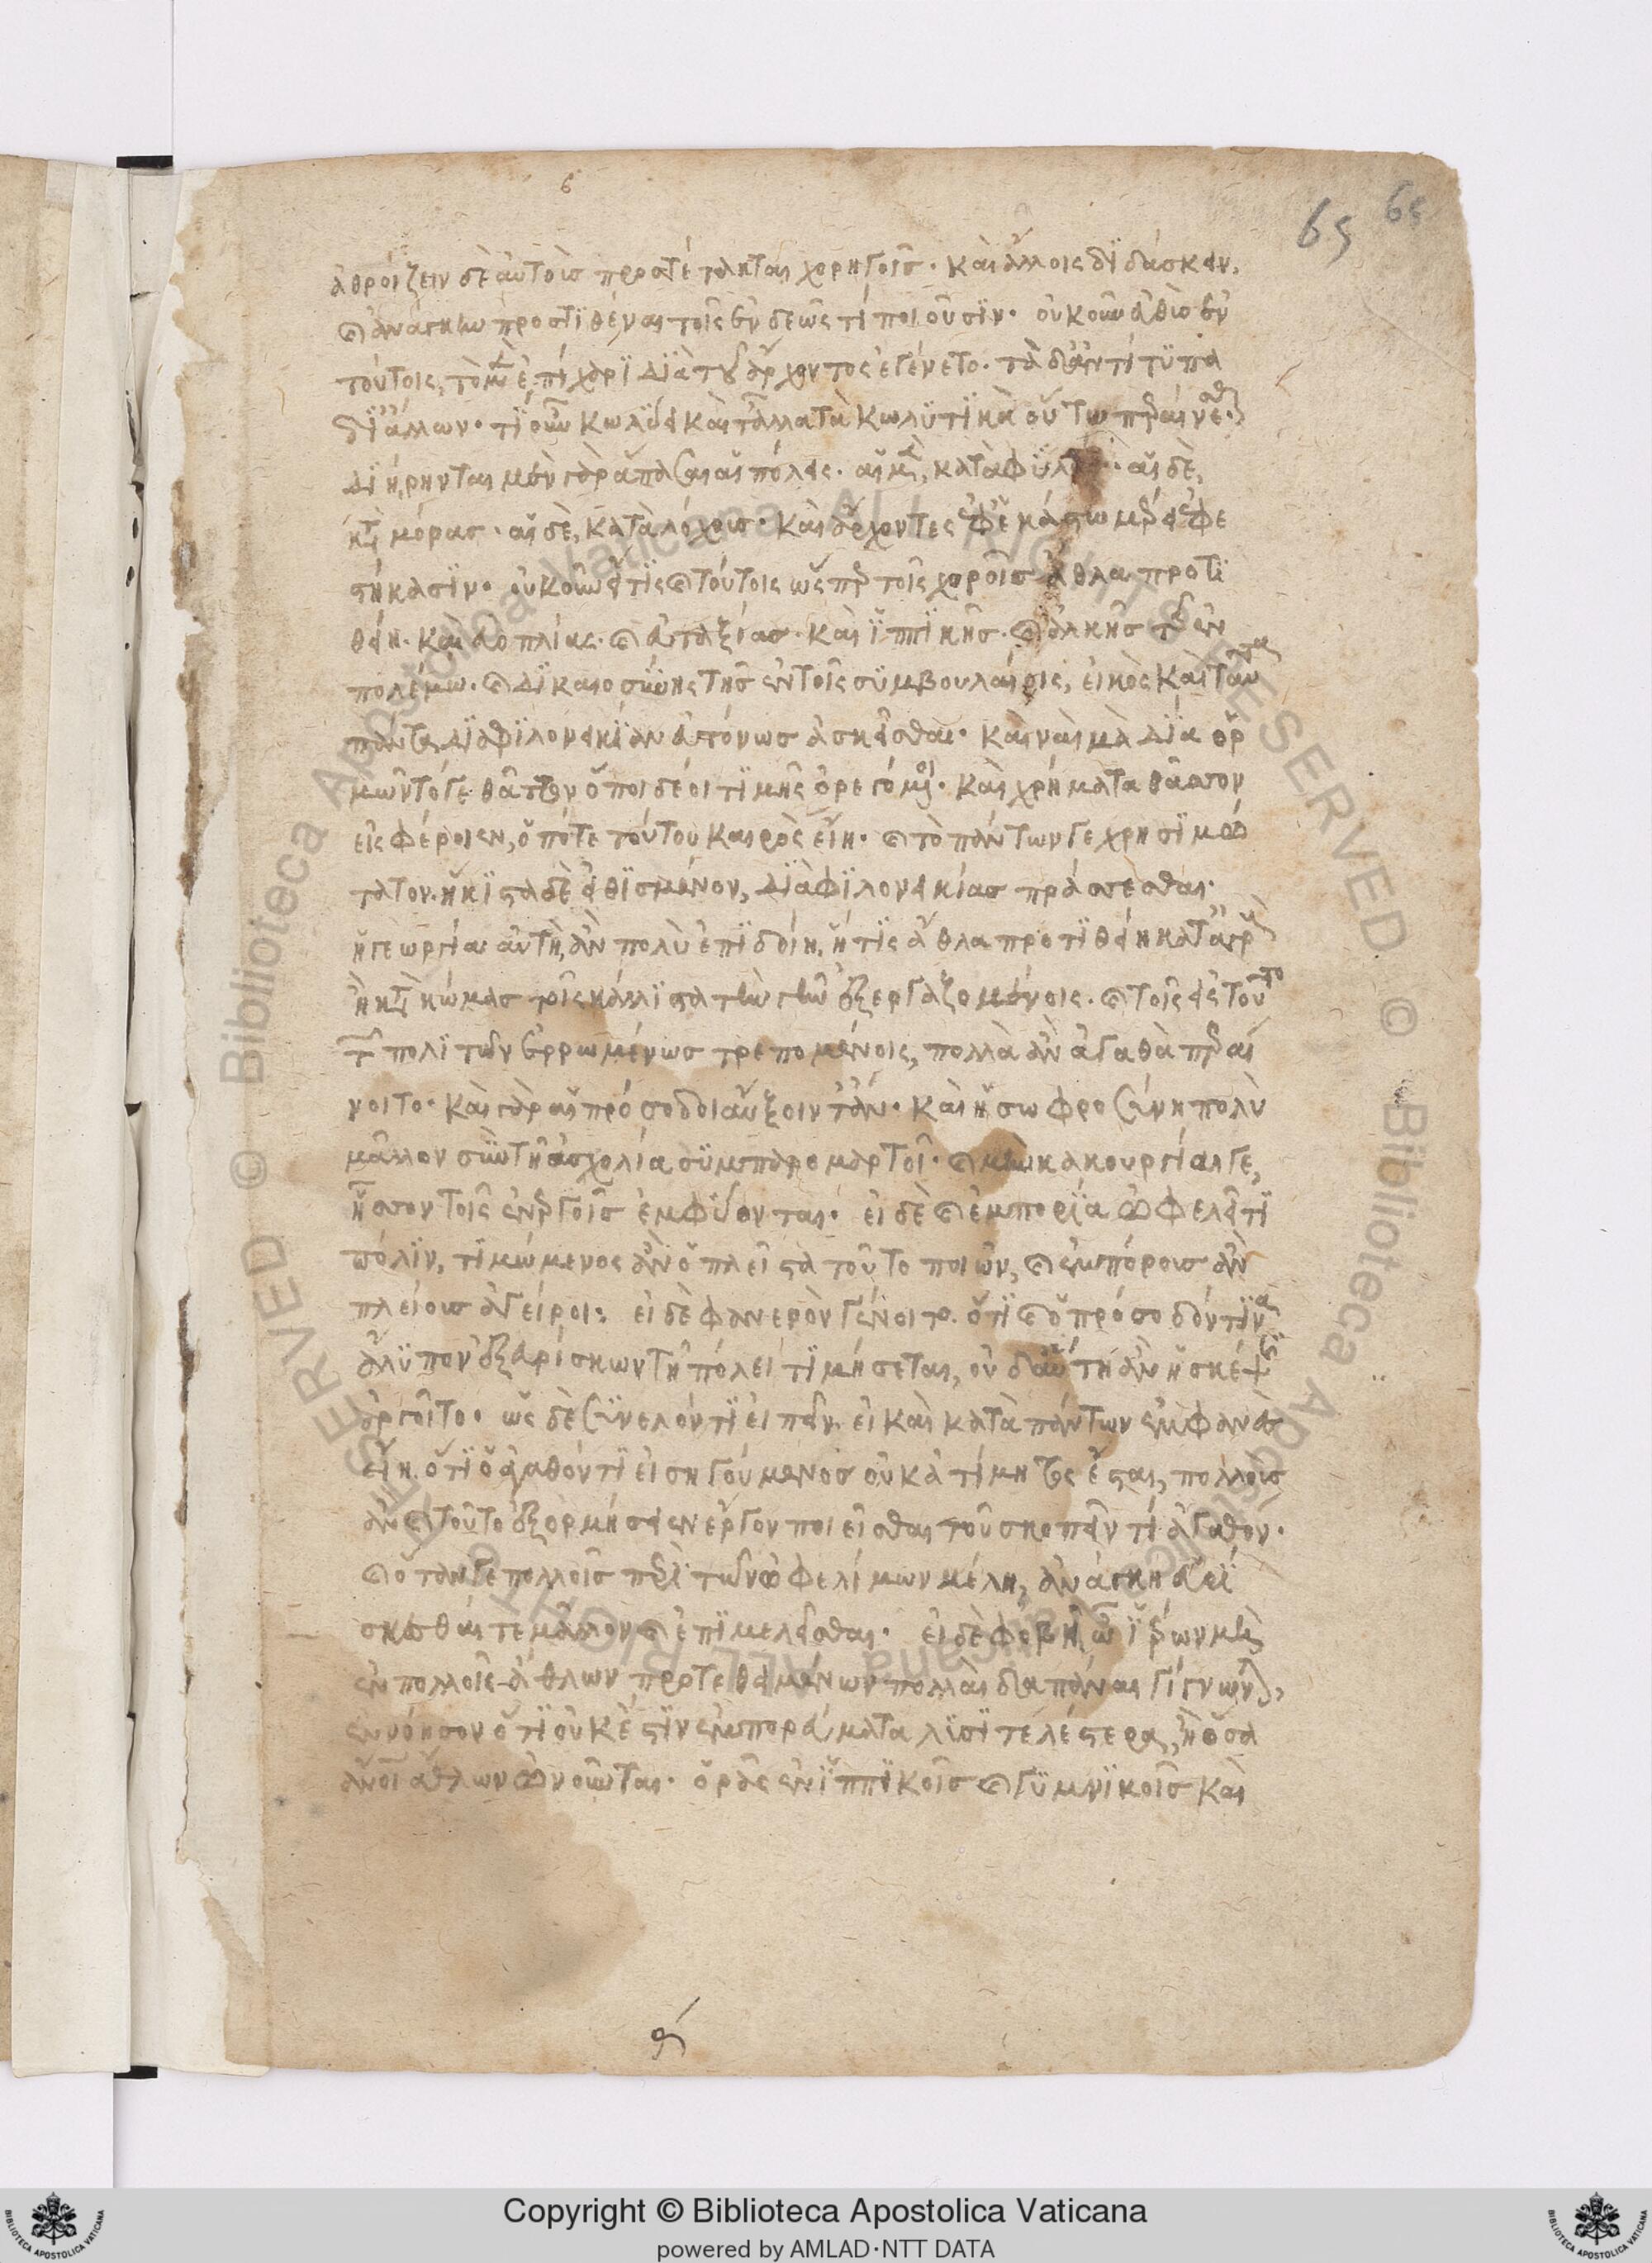 6
65 65
ἀθροίζειν δὲ αὐτοὺς προστέτακται χορηγοῖς· καὶ ἄλλοις διδάσκειν,
καὶ ἀνάγκην προστιθέναι τοῖς ἐνδεῶς τι ποιοῦσιν· οὐκοῦν εὐθὺς ἐν
τούτοις, τὸ μὲν ἐπίχαρι διὰ τοῦ ἄρχοντος ἐγένετο· τὰ δ' ἀντίτυπα
δι' ἄλλων· τί οὖν κωλύει καὶ τἄλλα τὰ πολιτικὰ οὕτω περαίνεσθαι·
διῄρηνται μὲν γὰρ ἅπασαι αἱ πόλεις· αἱ μὲν, κατὰ φυλὰς· αἱ δὲ,
κατὰ μόρας· αἱ δὲ, κατὰ λόχους· καὶ ἄρχοντες ἐφ' ἑκάστῳ μέρει ἐφε
στήκασιν· οὐκοῦν εἴ τις καὶ τούτοις ὥσπερ τοῖς χοροῖς ἆθλα προτι
θείη· καὶ εὐοπλίας· καὶ εὐταξίας· καὶ ἱππικῆς· καὶ ἀλκῆς τῆς ἐν
πολέμῳ· καὶ δικαιοσύνης τῆς ἐν τοῖς συμβουλαίοις, εἰκὸς καὶ ταῦτα
πάντα διὰ φιλονεικίαν εὐτόνως ἀσκεῖσθαι· καὶ ναὶ μὰ Δία ὁρ
μῷντό γε θᾶττον ὅποι δέοι τιμῆς ὀρεγόμενοι· καὶ χρήματα θᾶττον
εἰσφέροιεν, ὁπότε τούτου καιρὸς εἴη· καὶ τὸ πάντων γε χρησιμώ
τατον· ἥκιστα δὲ εἰθισμένον, διὰ φιλονεικίας πράττεσθαι·
ἡ γεωργία αὐτὴ, ἂν πολὺ ἐπιδοίη, εἴ τις ἆθλα προτιθείη κατ' ἀγροὺς
ἢ κατὰ κώμας τοῖς κάλλιστα τὴν γῆν ἐξεργαζομένοις· καὶ τοῖς εἰς τοῦτο
τῶν πολιτῶν ἐρρωμένως τρεπομένοις, πολλὰ ἂν ἀγαθὰ περαί
νοιτο· καὶ γὰρ αἱ πρόσοδοι αὔξοιντ' ἄν· καὶ ἡ σωφροσύνη πολὺ
μᾶλλον σὺν τῇ ἀσχολίᾳ συμπαρομαρτοῖ· καὶ μὴν κακουργίαι γε,
ἧττον τοῖς ἐνεργοῖς ἐμφύονται· εἰ δὲ καὶ ἐμπορία ὠφελεῖ τι
πόλιν, τιμώμενος ἂν ὁ πλεῖστα τοῦτο ποιῶν, καὶ ἐμπόρους ἂν
πλείους ἀγείροι· εἰ δὲ φανερὸν γένοιτο· ὅτι καὶ ὁ πρόσοδόν τινα
ἄλυπον ἐξευρίσκων τῇ πόλει τιμήσεται, οὐδ' αὕτη ἂν ἡ σκέψις
ἀργοῖτο· ὡς δὲ συνελόντι εἰπεῖν· εἰ καὶ κατὰ πάντων ἐμφανὲς
εἴη· ὅτι ὁ ἀγαθόν τι εἰσηγούμενος οὐκ ἀτίμητος ἔσται, πολλοὺς
ἂν καὶ τοῦτο ἐξορμήσειεν ἔργον ποιεῖσθαι τοῦ σκοπεῖν τι ἀγαθόν·
καὶ ὅταν γε πολλοῖς περὶ τῶν ὠφελίμων μέλῃ, ἀνάγκη εὑρί
σκεσθαί τε μᾶλλον καὶ ἐπιμελεῖσθαι· εἰ δὲ φοβῇ ὦ Ἱέρων μὴ
ἐν πολλοῖς ἄθλων προτεθειμένων πολλαὶ δαπάναι γίγνωνται,
ἐννόησον ὅτι οὐκ ἔστιν ἐμπορεύματα λυσιτελέστερα, ἢ ὅσα
ἄνθρωποι ἄθλων ὠνοῦνται· ὁρᾷς ἐν ἱππικοῖς καὶ γυμνικοῖς καὶ
Copyright © Biblioteca Apostolica Vaticana
powered by AMLAD·NTT DATA